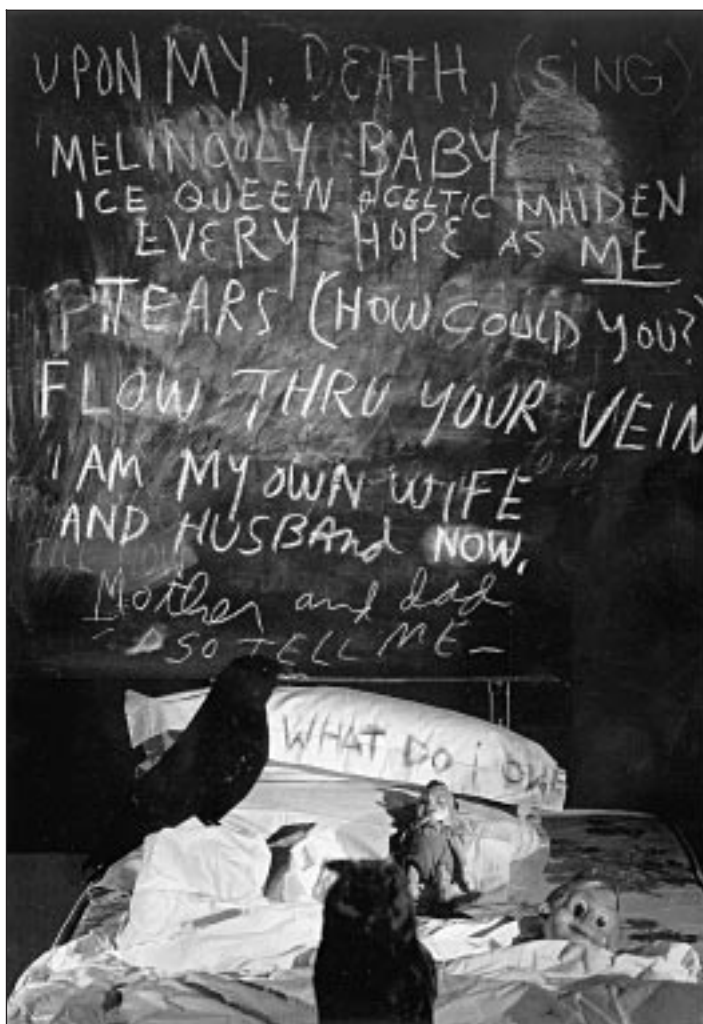 UPON MY. DEATH, (SiNG)
'MELINQOLY BABY
ICE QUEEN & CELTIC MAIDEN
EVERY HOPE AS ME
TEARS (HOW COULD YOU?)
FLOW THRU YOUR VEIN
I AM MY OWN WIFE
AND HUSBANd NOW.
Mother and dad
SO TELL ME —
WHAT DO i OWE